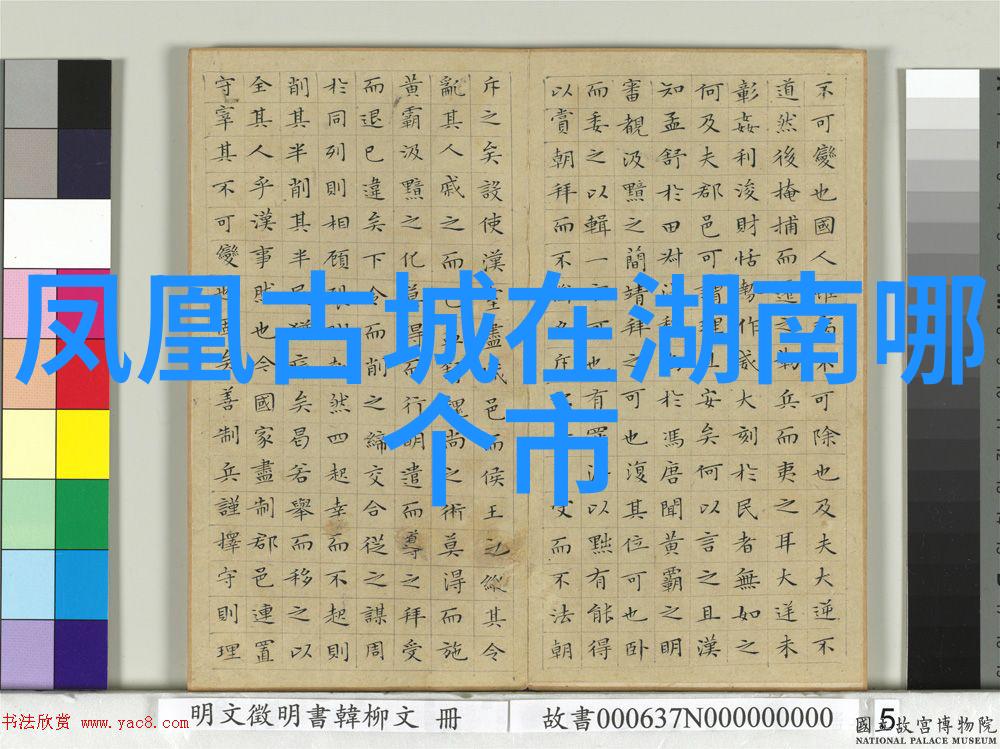 不可變也國人不可除也及夫大逆不
道然後掩捕而遷之勒兵而夷之耳大逆未
彰姦利浚財怙勢作威大刻於民者無如之
何及夫郡邑可謂理且安矣何以言之且漢
知孟舒於田叔於馮唐聞黃霸之明
審覩汲黯之簡靖拜之可也復其位可也臥
而委之以輯一可也有罪以黜有能得
以賞朝拜而不斥受而不法朝
斥之矣設使漢室盡城邑而侯王之縱其令
亂其人戚之而已尚之術莫得而施
黃霸汲黯之化莫得而行明遣而導之拜受
而退已違矣下令而削之締交合從之謀周
於同列則相顧然四起幸而不起則
削其半削其半矣曷若舉而移之以
全其人乎漢事然也今國家盡制郡邑連置
守宰其不可變也矣善制兵謹擇守則理
凤凰古城在湖南哪
个市
书法欣赏 www.yac8.com
明文徵明書韓柳文 冊
故書000637N000000000
5
國立故宮博物院
NATIONAL PALACE MUSEUM